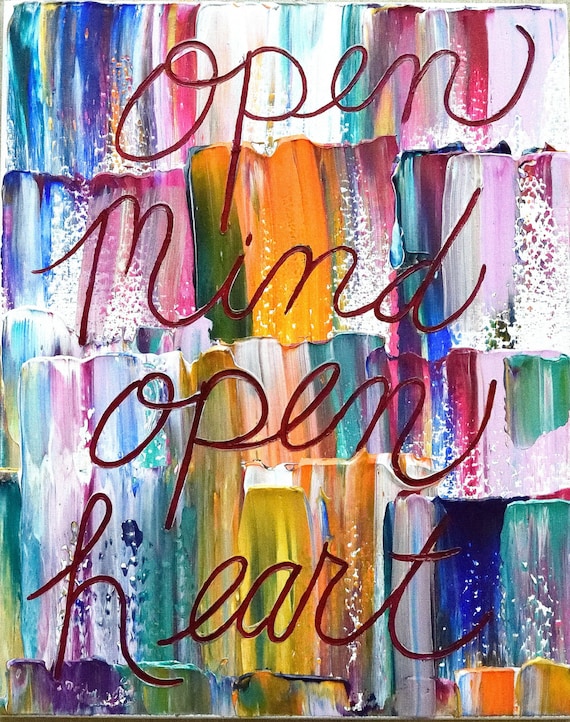 open
mind
open
heart